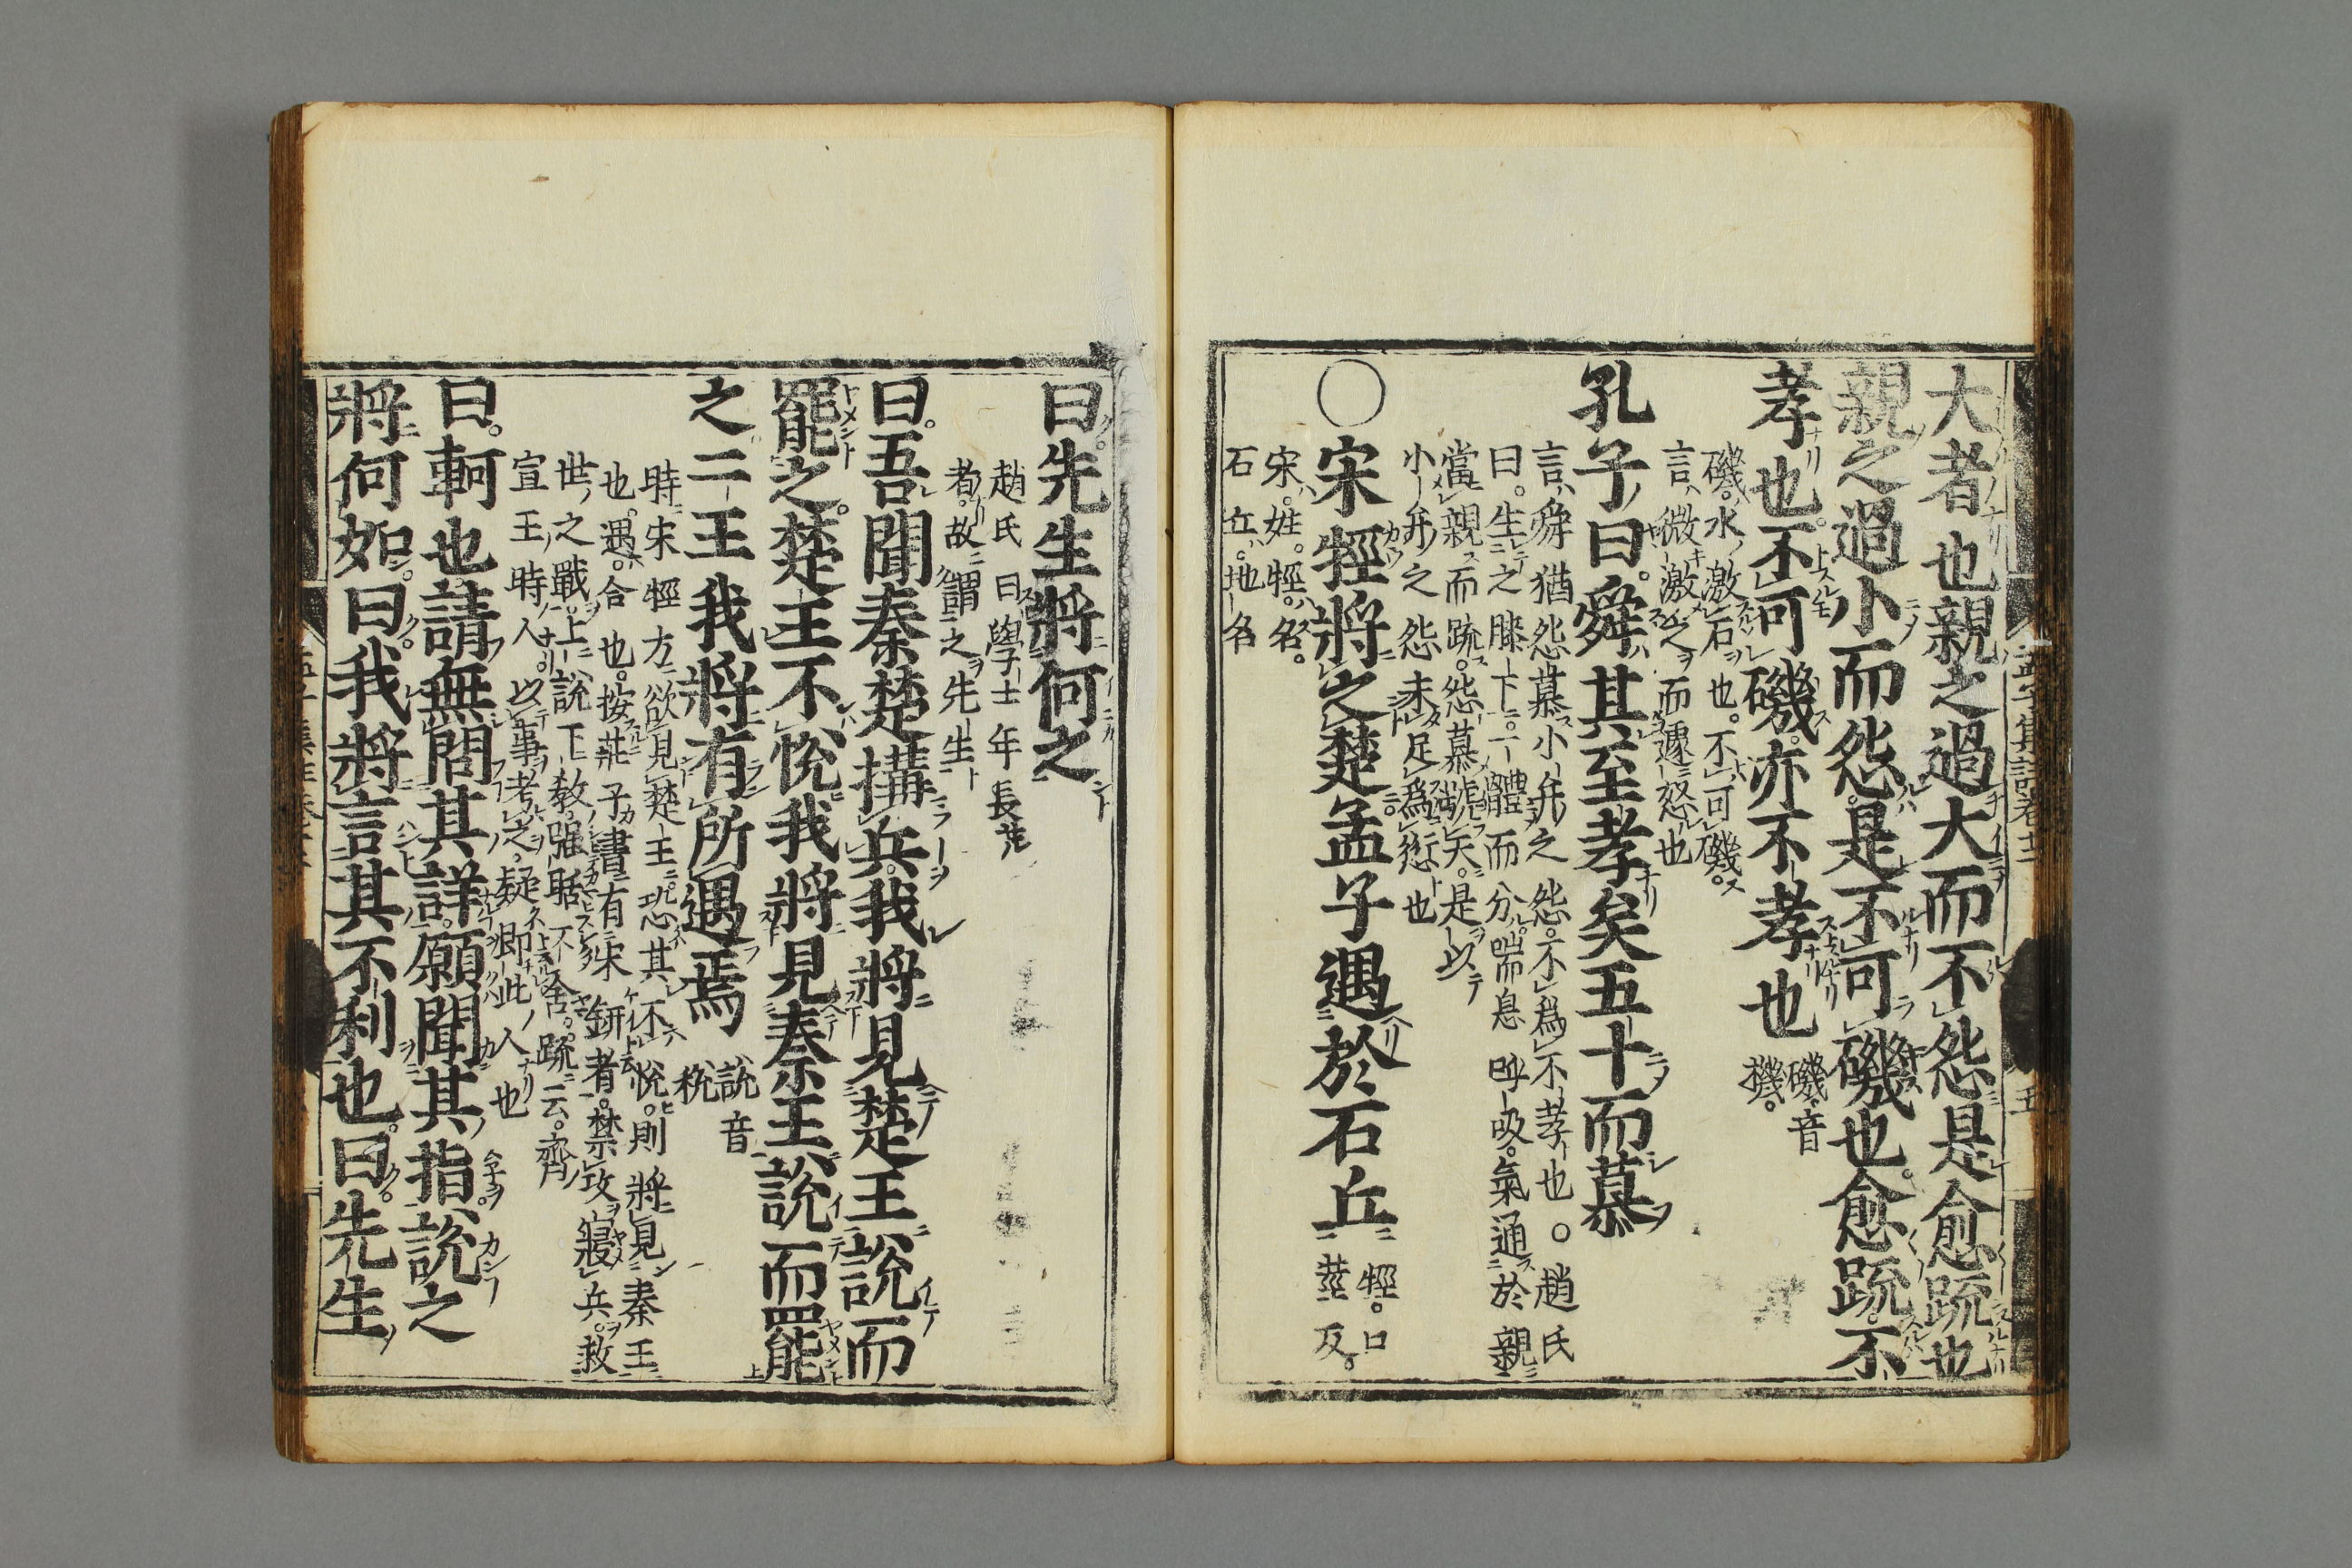 孟子集註卷十二
五
大者也親之過大而不怨是愈疏也
親之過小而怨是不可磯也愈疏不
孝也不可磯亦不孝也磯音
機。
磯。水激石也。不可磯。
言微激之而遽怒也
孔子曰。舜其至孝矣五十而慕
言舜猶怨慕小弁之怨。不爲不孝也。趙氏
曰。生之膝下。一體而分。喘息呼吸。氣通於親
當親而疏。怨慕號天。是以
小弁之怨未足爲愆也
○宋牼將之楚孟子遇於石丘牼。口
莖反。
宋。姓。牼。名。
石丘。地名
曰。先生將何之
趙氏曰學士年長
者。故謂之先生
曰。吾聞秦楚搆兵。我將見楚王說而
罷之。楚王不悅我將見秦王說而罷
之二王我將有所遇焉說音
稅
時宋牼方欲見楚王。恐其不悅。則將見秦王
也。遇。合也。按莊子書有宋鈃者。禁攻寢兵。救
世之戰。上說下敎。强聒不舍。疏云。齊
宣王時人。以事考之。疑卽此人也
曰。軻也請無問其詳。願聞其指。說之
將何如。曰。我將言其不利也。曰。先生